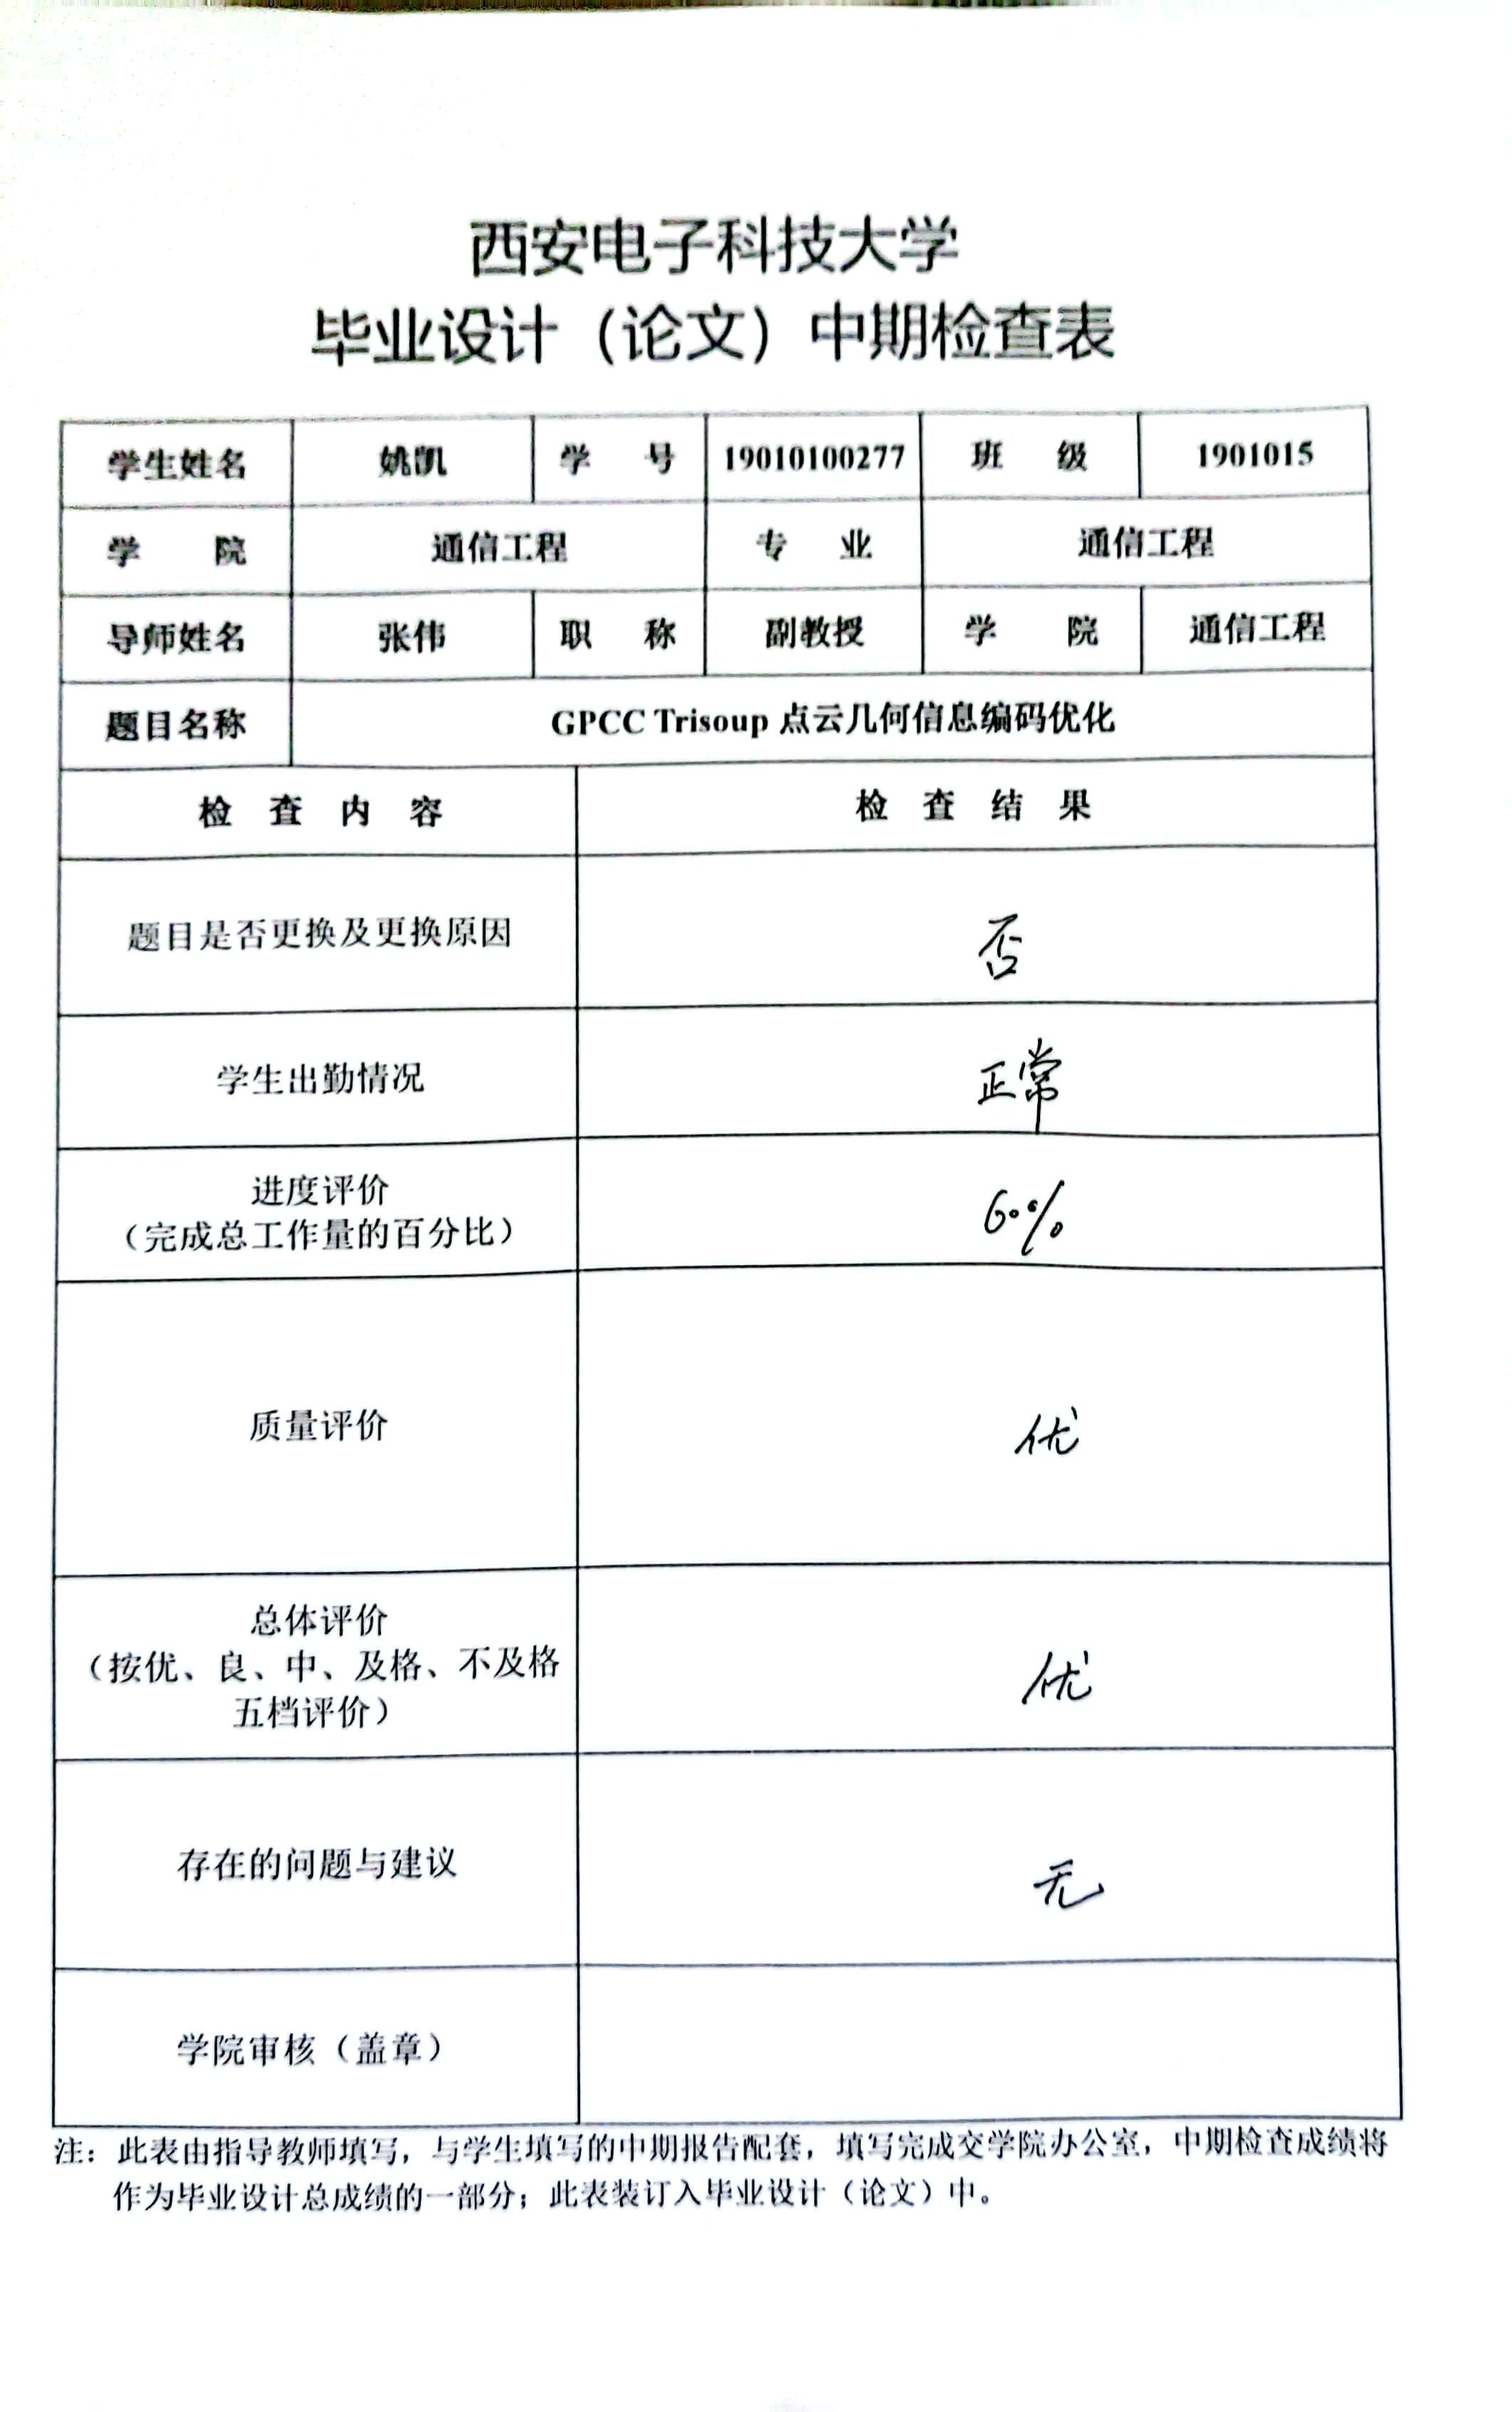 西安电子科技大学
毕业设计（论文）中期检查表
学生姓名 姚凯 学 号 19010100277 班 级 1901015
学 院 通信工程 专 业 通信工程
导师姓名 张伟 职 称 副教授 学 院 通信工程
题目名称 GPCC Trisoup 点云几何信息编码优化
检 查 内 容 检 查 结 果
题目是否更换及更换原因 否
学生出勤情况 正常
进度评价
（完成总工作量的百分比） 60%
质量评价 优
总体评价
（按优、良、中、及格、不及格
五档评价） 优
存在的问题与建议 无
学院审核（盖章）
注：此表由指导教师填写，与学生填写的中期报告配套，填写完成交学院办公室，中期检查成绩将
作为毕业设计总成绩的一部分；此表装订入毕业设计（论文）中。